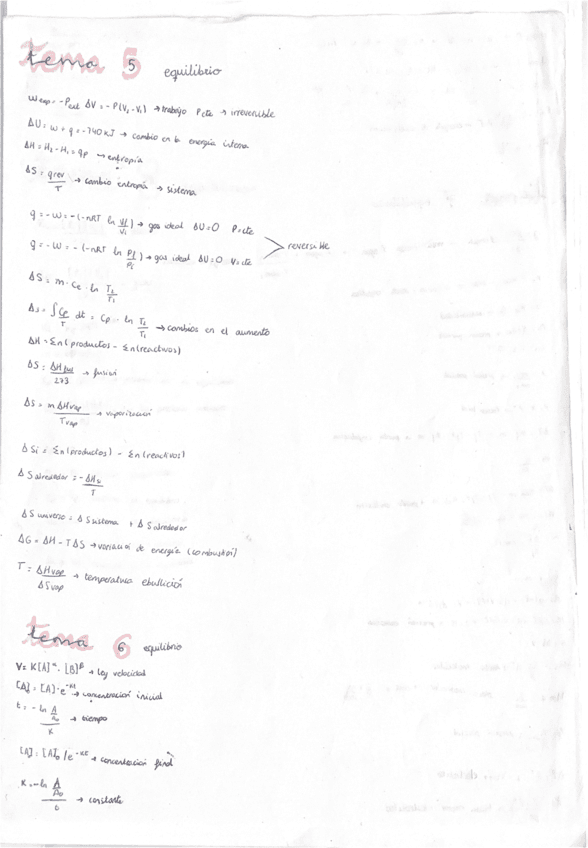 tema 5 equilibrio
Wexp = -Pext ΔV = -P(V₂-V₁) → trabajo Pcte → irreversible
ΔU = w + q = -740 kJ → cambio en la energía interna
ΔH = H₂ - H₁ = qp → entropía
ΔS = qrev/T → cambio entropía → sistema
q = -W = -(-nRT ln Vf/Vi) → gas ideal ΔU=0 P=cte
reversible
q = -W = -(-nRT ln Pf/Pi) → gas ideal ΔU=0 V=cte
ΔS = m · Ce · ln T₂/T₁
Δs = ∫ Cp/T dt = Cp · ln T₂/T₁ → cambios en el aumento
ΔH = Σn(productos) - Σn(reactivos)
ΔS = ΔHfus/273 → fusión
ΔS = m ΔHvap/Tvap → vaporización
ΔSi = Σn(productos) - Σn(reactivos)
ΔSalrededor = -ΔHsi/T
ΔSuniverso = ΔSsistema + ΔSalrededor
ΔG = ΔH - TΔS → variación de energía (combustión)
T = ΔHvap/ΔSvap → temperatura ebullición
tema 6 equilibrio
V = K[A]^α · [B]^β → ley velocidad
[A]₀ = [A]·e^-kt → concentración inicial
t = -ln A/A₀ / K → tiempo
[A] = [A]₀/e^-kt → concentración final
K = -ln A/A₀ / 0 → constante